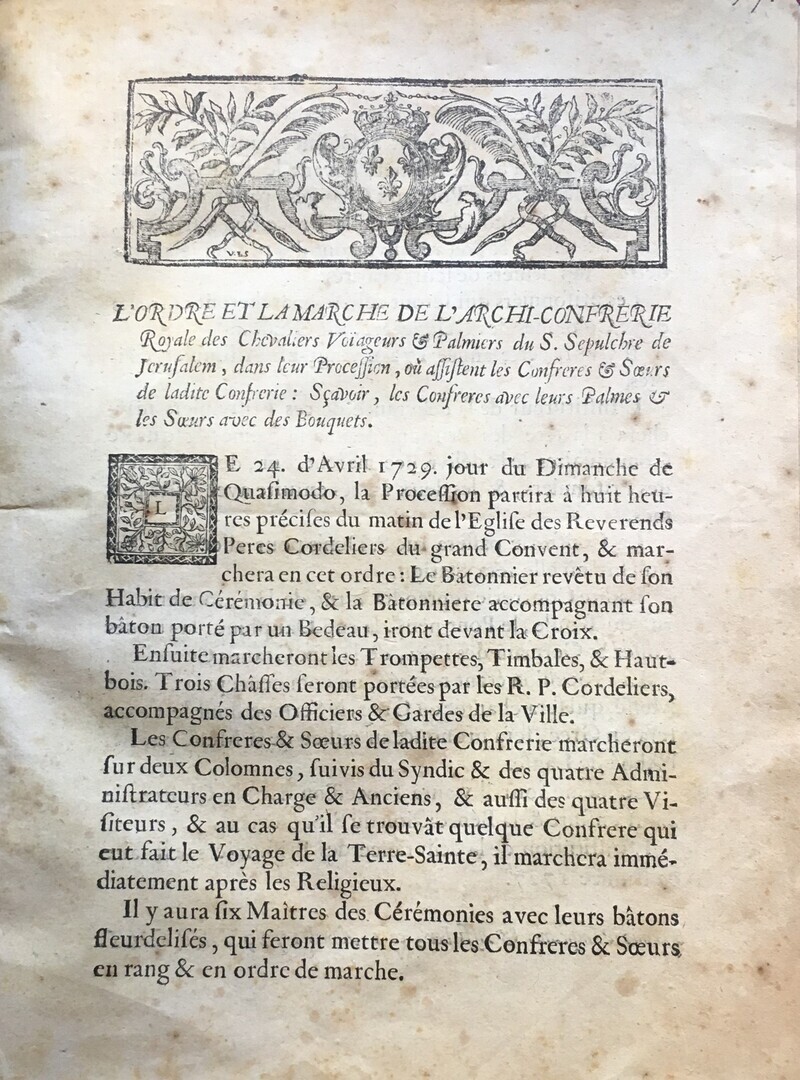 V.LS
L'ORDRE ET LA MARCHE DE L'ARCHI-CONFRÈRIE
Royale des Chevaliers Voïageurs & Palmiers du S. Sepulchre de
Jeruſalem, dans leur Proceſſion, où aſſiſtent les Confreres & Sœurs
de ladite Confrerie : Sçavoir, les Confreres avec leurs Palmes &
les Sœurs avec des Bouquets.
LE 24. d'Avril 1729. jour du Dimanche de
Quaſimodo, la Proceſſion partira à huit heu-
res préciſes du matin de l'Egliſe des Reverends
Peres Cordeliers du grand Convent, & mar-
chera en cet ordre : Le Bâtonnier revêtu de ſon
Habit de Cérémonie, & la Bâtonniere accompagnant ſon
bâton porté par un Bedeau, iront devant la Croix.
Enſuite marcheront les Trompettes, Timbales, & Haut-
bois. Trois Châſſes ſeront portées par les R. P. Cordeliers,
accompagnés des Officiers & Gardes de la Ville.
Les Confreres & Sœurs de ladite Confrerie marcheront
ſur deux Colomnes, ſuivis du Syndic & des quatre Admi-
niſtrateurs en Charge & Anciens, & auſſi des quatre Vi-
ſiteurs, & au cas qu'il ſe trouvât quelque Confrere qui
eut fait le Voyage de la Terre-Sainte, il marchera immé-
diatement après les Religieux.
Il y aura ſix Maîtres des Cérémonies avec leurs bâtons
fleurdeliſés, qui feront mettre tous les Confreres & Sœurs
en rang & en ordre de marche.